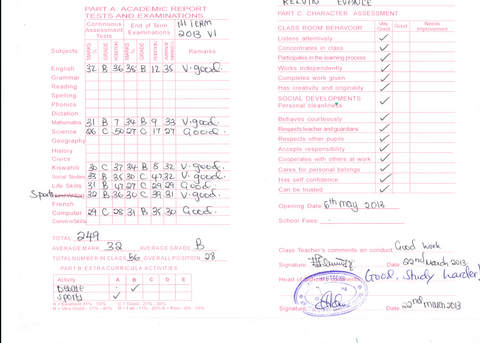 PART A: ACADEMIC REPORT
TESTS AND EXAMINATIONS
1st TERM
2013 VI
Continuous Assessment Tests
End of Term Examinations
Subjects MARKS % GRADE POSITION MARKS % GRADE POSITION Remarks
English 32 B 36 35 B 12 35 V.good.
Grammar
Reading
Spelling
Phonics
Dictation
Mathematics 31 B 7 34 B 9 33 V.good
Science 26 C 50 27 C 17 27 Good.
Geography
History
Civics
Kiswahili 30 C 37 34 B 5 32 V.good.
Social Studies 33 B 35 30 C 47 32 V.good.
Life Skills 31 B 47 27 C 29 29 Good
Sports 32 B 36 30 C 39 31 V.good.
French
Computer 29 C 28 31 B 35 30 Good.
Comm/Skills
TOTAL 249
AVERAGE MARK 32 AVERAGE GRADE B
TOTAL NUMBER IN CLASS 56 OVERALL POSITION 28
PART B: EXTRA CURRICULA ACTIVITIES
Activity A B C D E
Debate
Sports
KELVIN EVANCE
PART C: CHARACTER ASSESSMENT
CLASS ROOM BEHAVIOUR Very Good Good Needs Improvement
Listens attentively
Concentrates in class
Participates in the learning process
Works independently
Completes work given
Has creativity and originality
SOCIAL DEVELOPMENTS
Personal cleanliness
Behaves courteously
Respects teacher and guardians
Respects other pupils
Accepts responsibility
Cooperates with others at work
Cares for personal belongings
Has self confidence
Can be trusted
Opening Date 6th may 2013
School Fees
Class Teacher's comments on conduct Good work
Signature Date 22nd March, 2013
Head of Good. Study harder!
Signature Date 22nd march 2013